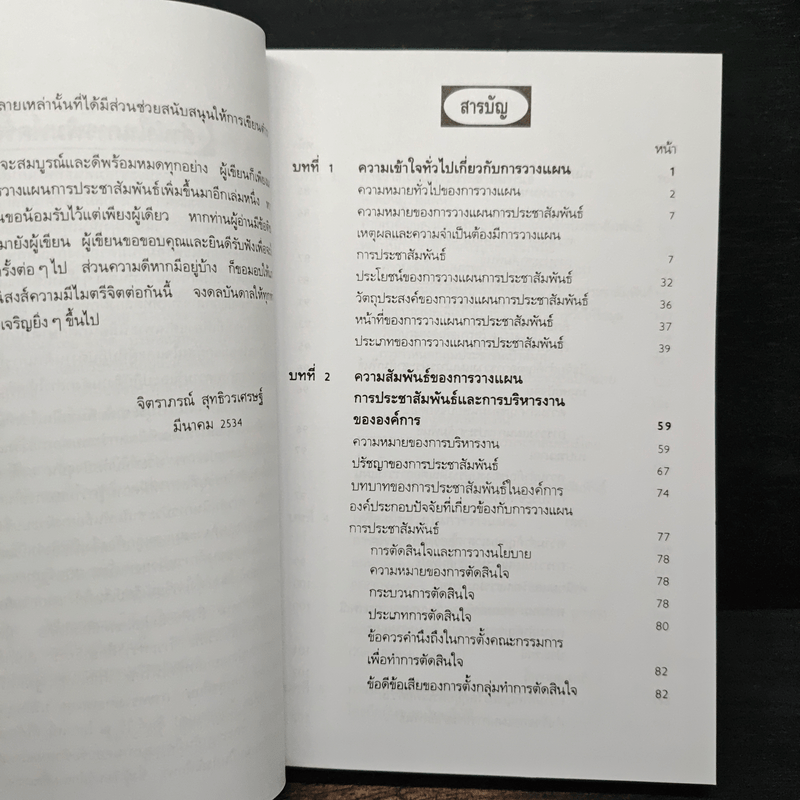 ลายเหล่านั้นที่ได้มีส่วนช่วยสนับสนุนให้การเขียน
จะสมบูรณ์และดีพร้อมหมดทุกอย่าง ผู้เขียนก็
วางแผนการประชาสัมพันธ์เพิ่มขึ้นมาอีกเล่มหนึ่ง
นขอน้อมรับไว้แต่เพียงผู้เดียว หากท่านผู้อ่านมี
มายังผู้เขียน ผู้เขียนขอขอบคุณและยินดีรับฟัง
รั้งต่อๆ ไป ส่วนความดีหากมีอยู่บ้าง ก็ขอมอบให้
นิสงส์ความมีไมตรีจิตต่อกันนี้ จงดลบันดาลให้
เจริญยิ่งๆ ขึ้นไป
จิตราภรณ์ สุทธิวรเศรษฐ์
มีนาคม 2534
สารบัญ
หน้า
บทที่ 1 ความเข้าใจทั่วไปเกี่ยวกับการวางแผน 1
ความหมายทั่วไปของการวางแผน 2
ความหมายของการวางแผนการประชาสัมพันธ์ 7
เหตุผลและความจำเป็นต้องมีการวางแผน
การประชาสัมพันธ์ 7
ประโยชน์ของการวางแผนการประชาสัมพันธ์ 32
วัตถุประสงค์ของการวางแผนการประชาสัมพันธ์ 36
หน้าที่ของการวางแผนการประชาสัมพันธ์ 37
ประเภทของการวางแผนการประชาสัมพันธ์ 39
บทที่ 2 ความสัมพันธ์ของการวางแผน
การประชาสัมพันธ์และการบริหารงาน
ขององค์การ 59
ความหมายของการบริหารงาน 59
ปรัชญาของการประชาสัมพันธ์ 67
บทบาทของการประชาสัมพันธ์ในองค์การ 74
องค์ประกอบปัจจัยที่เกี่ยวข้องกับการวางแผน
การประชาสัมพันธ์ 77
การตัดสินใจและการวางนโยบาย 78
ความหมายของการตัดสินใจ 78
กระบวนการตัดสินใจ 78
ประเภทการตัดสินใจ 80
ข้อควรคำนึงถึงในการตั้งคณะกรรมการ
เพื่อทำการตัดสินใจ 82
ข้อดีข้อเสียของการตั้งกลุ่มทำการตัดสินใจ 82